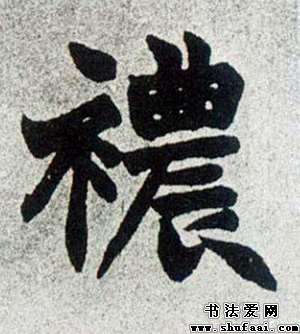 襛
书法爱网
www.shufaai.com